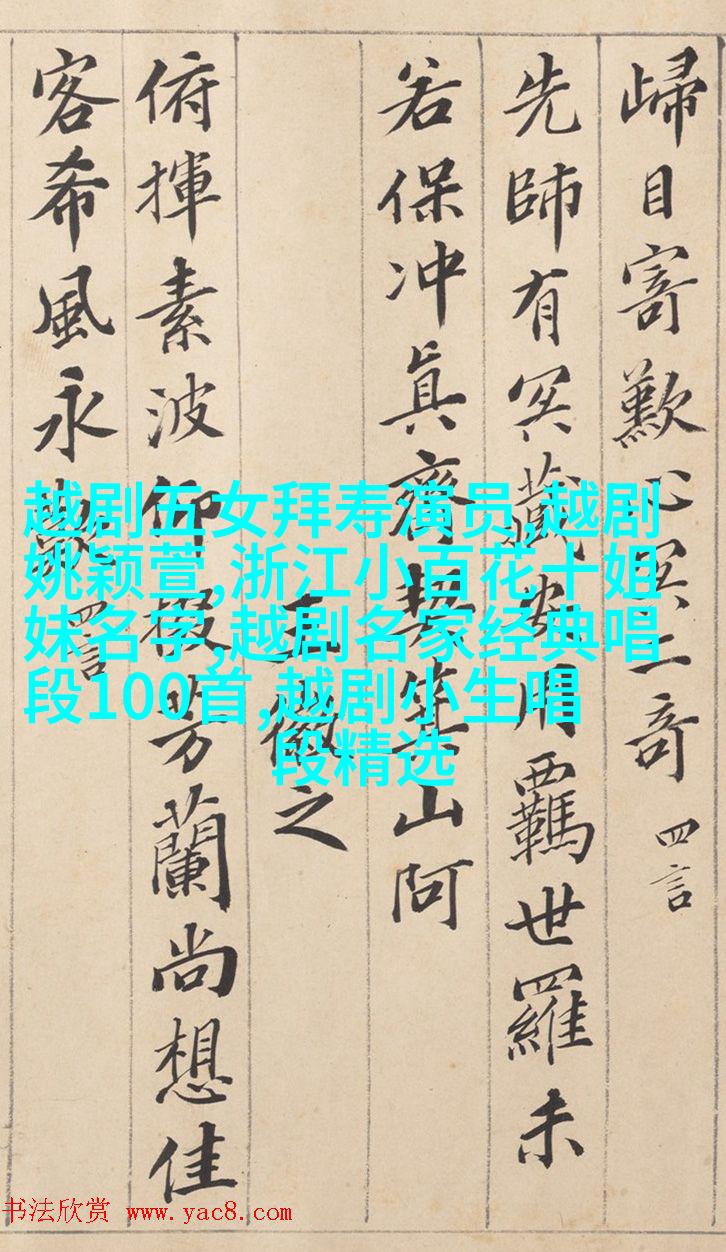 歸目寄歎心冥二奇 四言
先師有冥藏安用羈世羅未
若保冲真齊契箕山阿
王徽之
俯揮素波仰掇芳蘭尚想佳
客希風永歎 四言
越剧五女拜寿演员,越剧
姚颖萱,浙江小百花十姐
妹名字,越剧名家经典唱
段100首,越剧小生唱
段精选
书法欣赏 www.yac8.com